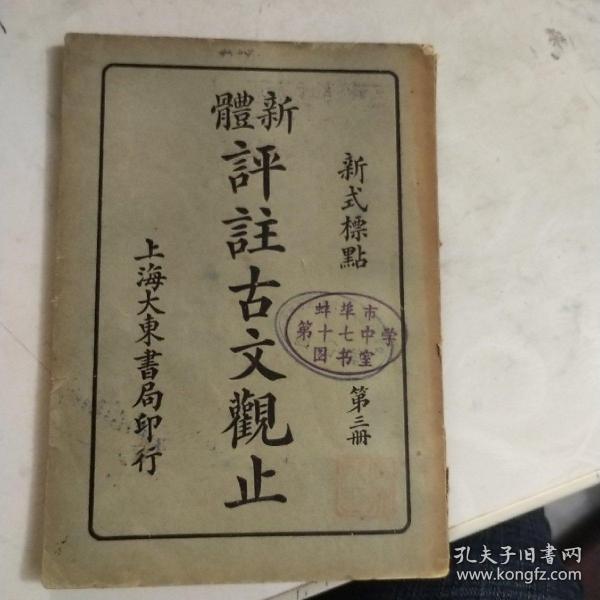 新式標點
第三冊
新體
評註古文觀止
上海大東書局印行
蚌埠市
第十七中学
图书室
孔夫子旧书网
www.kongfz.com